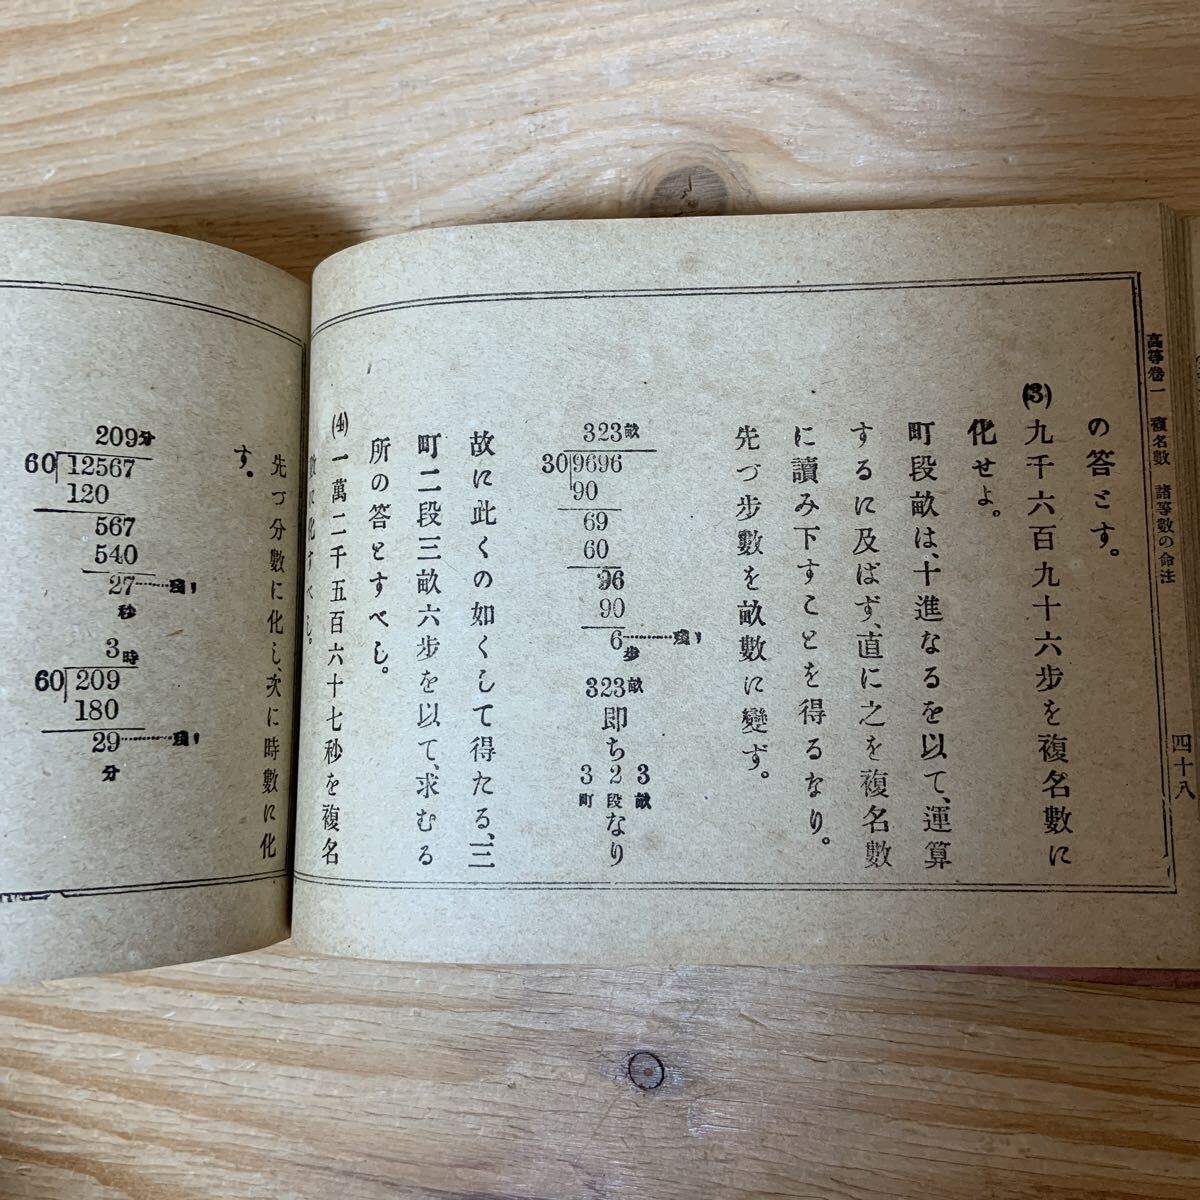 高等卷一　複名數　諸等數の命法
四十八
の答とす。
(3) 九千六百九十六步を複名數に
化せよ。
町段畝は、十進なるを以て、運算
するに及ばず、直に之を複名數
に讀み下すことを得るなり。
先づ步數を畝數に變ず。
323畝
30 9696
90
69
60
96
90
6 步 ……殘り
323畝
即ち
3町 2段 3畝
なり
故に此くの如くして得たる、三
町二段三畝六步を以て、求むる
所の答とすべし。
(4) 一萬二千五百六十七秒を複名
數に化すべし。
先づ分數に化し、次に時數に化
す。
209分
60 12567
120
567
540
27 秒 ……殘り
3時
60 209
180
29 分 ……殘り